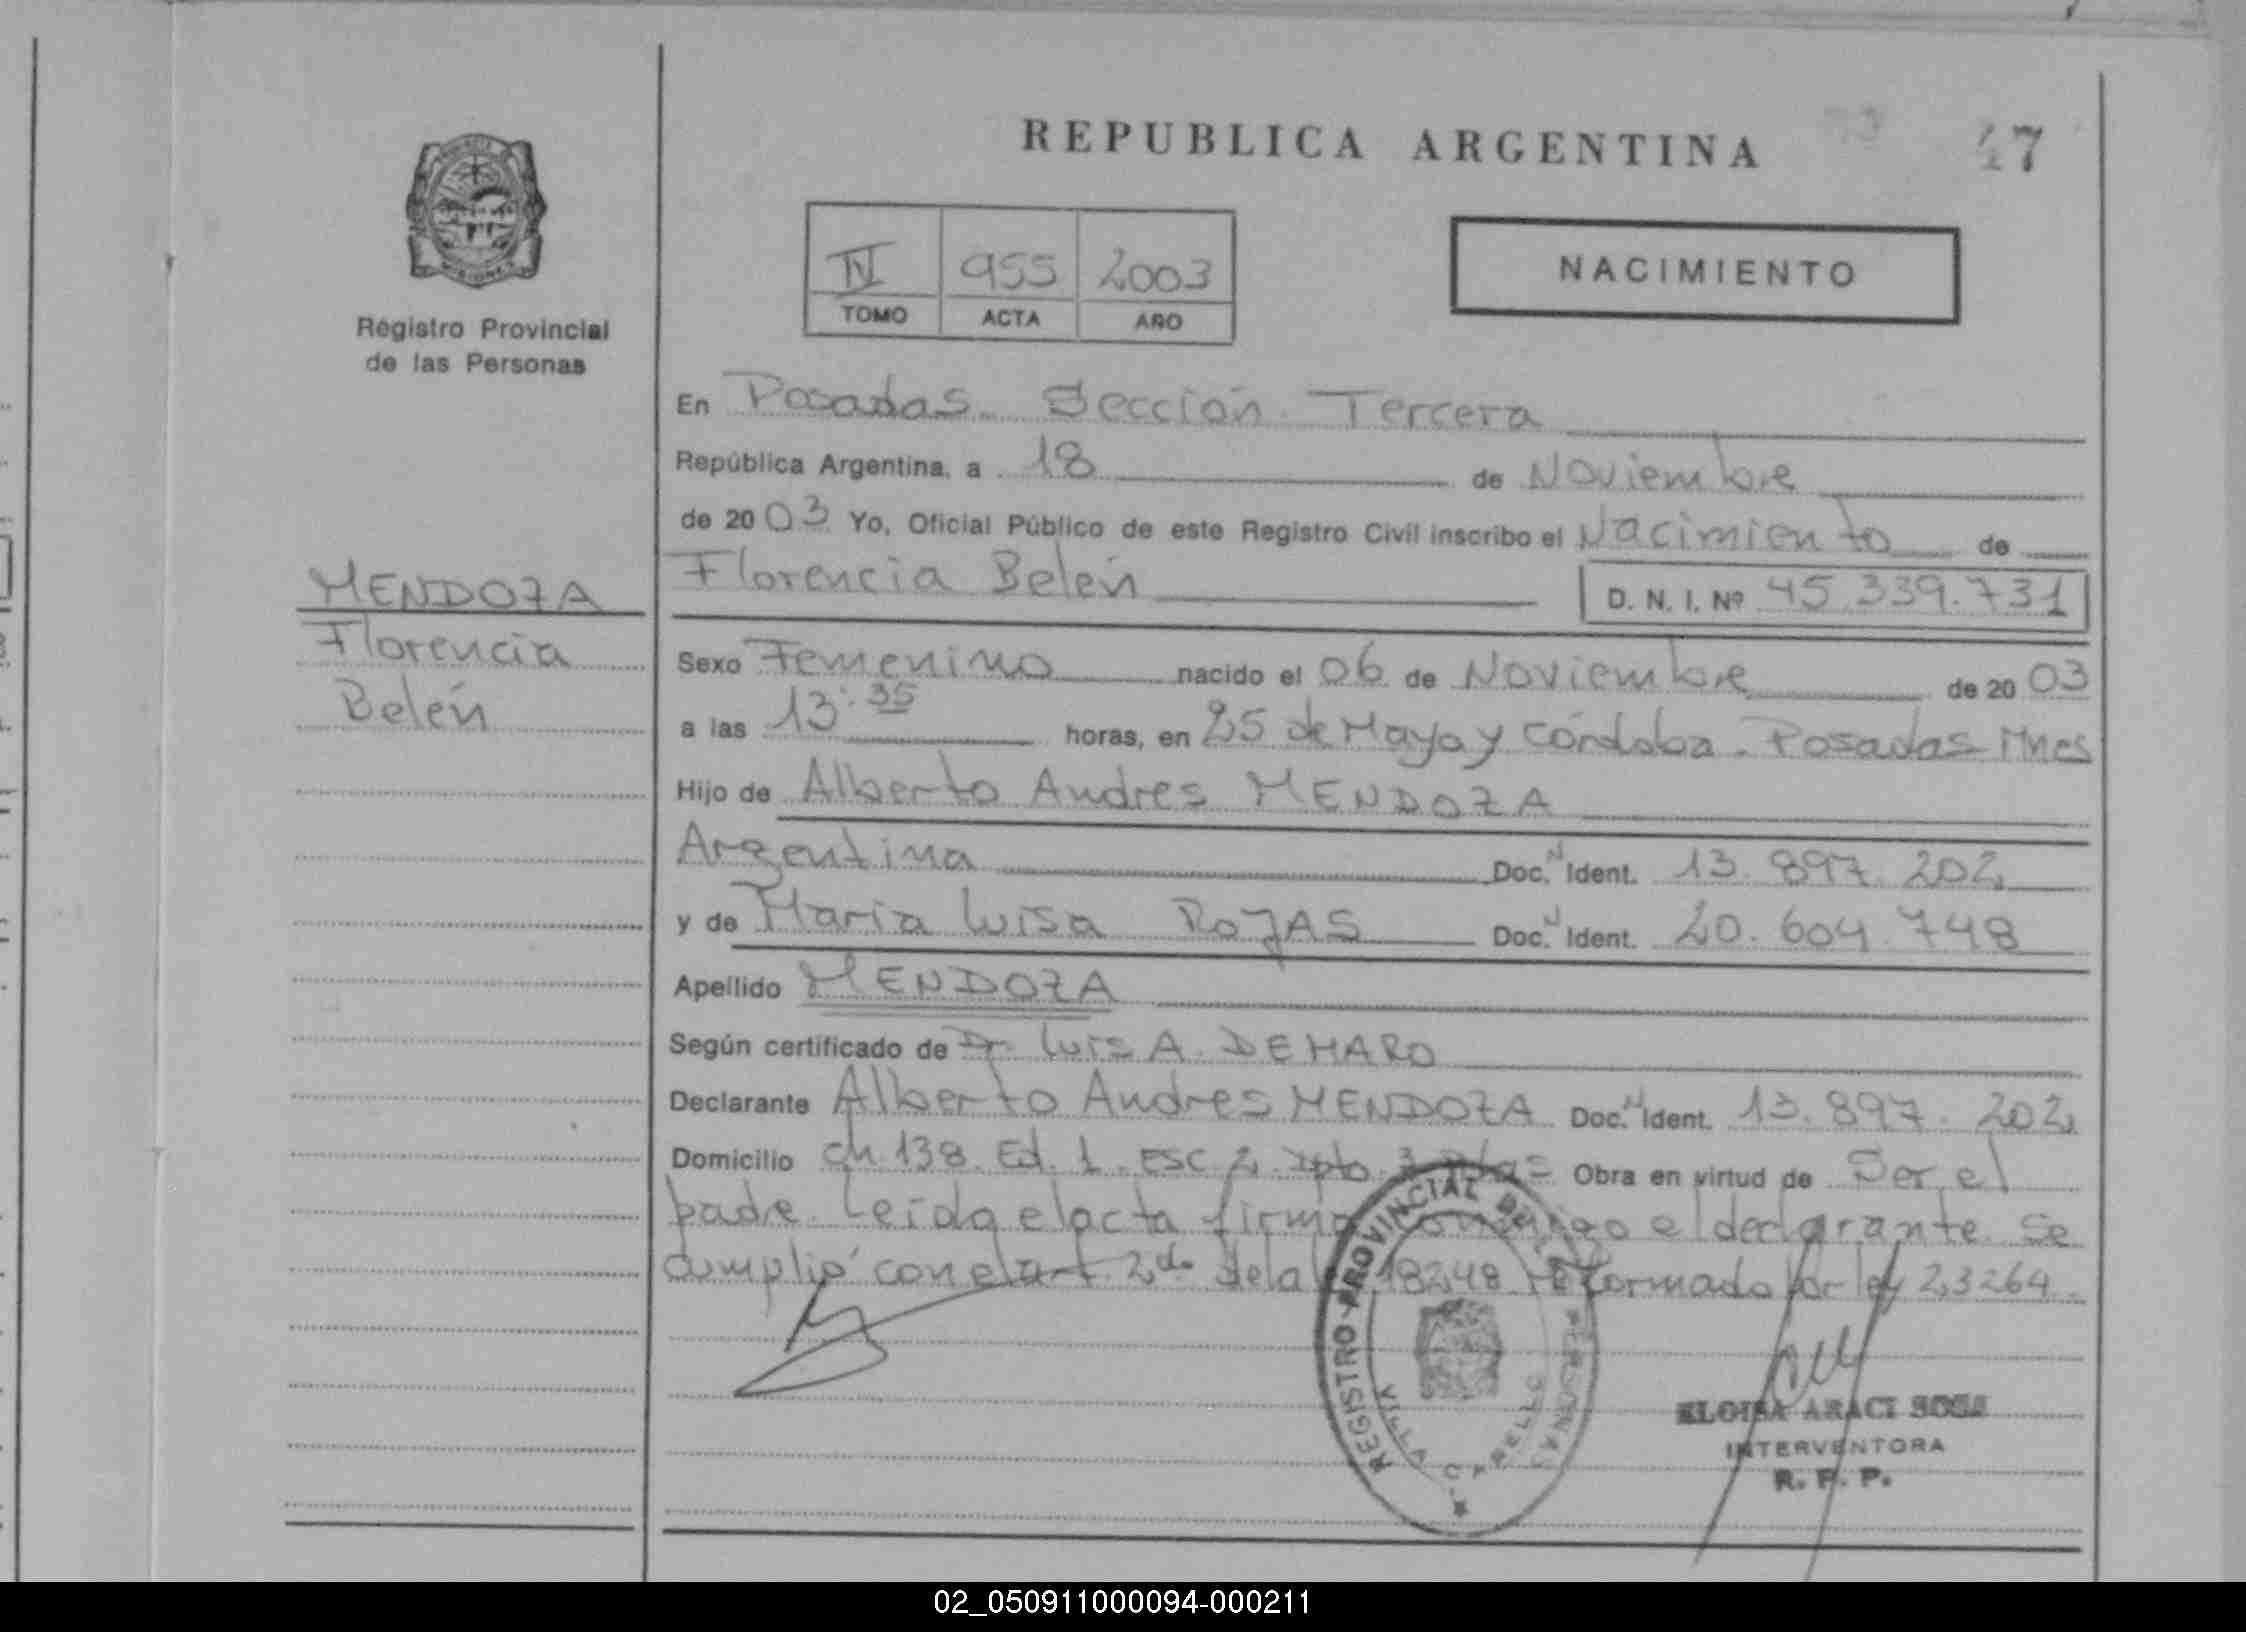 REPUBLICA ARGENTINA
47
IV 955 2003
TOMO ACTA AÑO
NACIMIENTO
Registro Provincial
de las Personas
MENDOZA
Florencia
Belén
En Posadas Sección Tercera
República Argentina, a 18 de Noviembre
de 2003 Yo, Oficial Público de este Registro Civil inscribo el Nacimiento de
Florencia Belén D. N. I. Nº 45.339.731
Sexo Femenino nacido el 06 de Noviembre de 2003
a las 13:35 horas, en 25 de Mayo y Córdoba. Posadas Mnes
Hijo de Alberto Andres MENDOZA
Argentina Doc. N Ident. 13.897.202
y de Maria Luisa ROJAS Doc. N Ident. 20.604.748
Apellido MENDOZA
Según certificado de Dr. Luis A. DEMARO
Declarante Alberto Andres MENDOZA Doc. N Ident. 13.897.202
Domicilio Ch 138 Ed. 1. Esc 2 Obra en virtud de Ser el
padre. Leida el acta firma conmigo el declarante. Se
cumplió con el art 2do de la 18248 reformado por ley 23264.
REGISTRO PROVINCIAL DE LAS PERSONAS
VILLA CABELLO
ELOISA ARACI SOSA
INTERVENTORA
R. P. P.
02_050911000094-000211